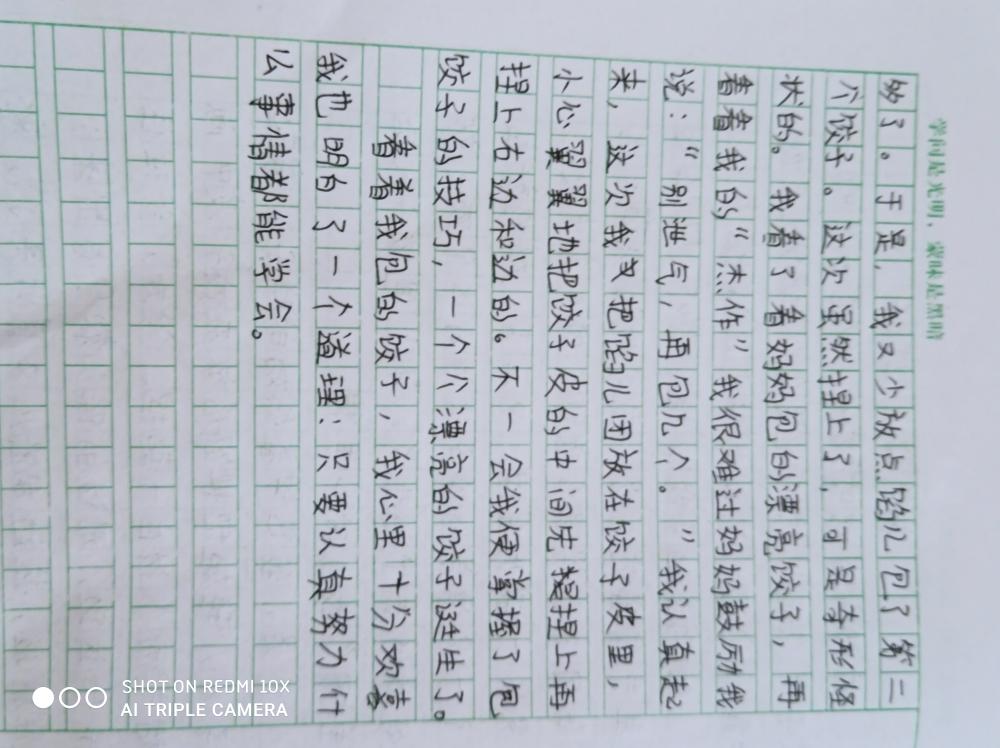 学问是光明，蒙昧是黑暗
够了。于是，我又少放点馅儿包了第二
个饺子。这次虽然捏上了，可是奇形怪
状的。我看了看妈妈包的漂亮饺子，再
看看我的“杰作”我很难过妈妈鼓励我
说：“别泄气，再包几个。”我认真起
来，这次我又把馅儿团放在饺子皮里，
小心翼翼地把饺子皮的中间先捏上再
捏上右边和边的。不一会我便掌握了包
饺子的技巧，一个个漂亮的饺子诞生了。
看着我包的饺子，我心里十分欢喜
我也明白了一个道理：只要认真努力什
么事情都能学会。
SHOT ON REDMI 10X
AI TRIPLE CAMERA